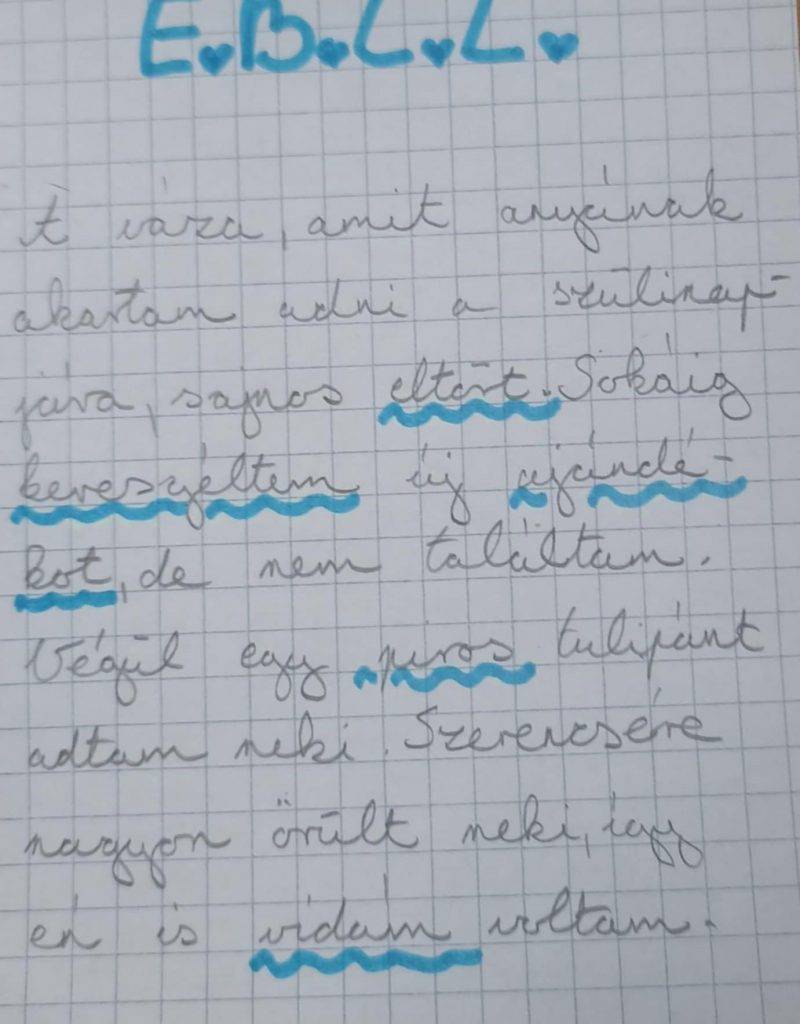 E.B.L.L.
A váza, amit anyának
akartam adni a szülinap-
jára, sajnos eltört. Sokáig
keresgéltem új ajándé-
kot, de nem találtam.
Végül egy piros tulipánt
adtam neki. Szerencsére
nagyon örült neki, így
én is vidám voltam.